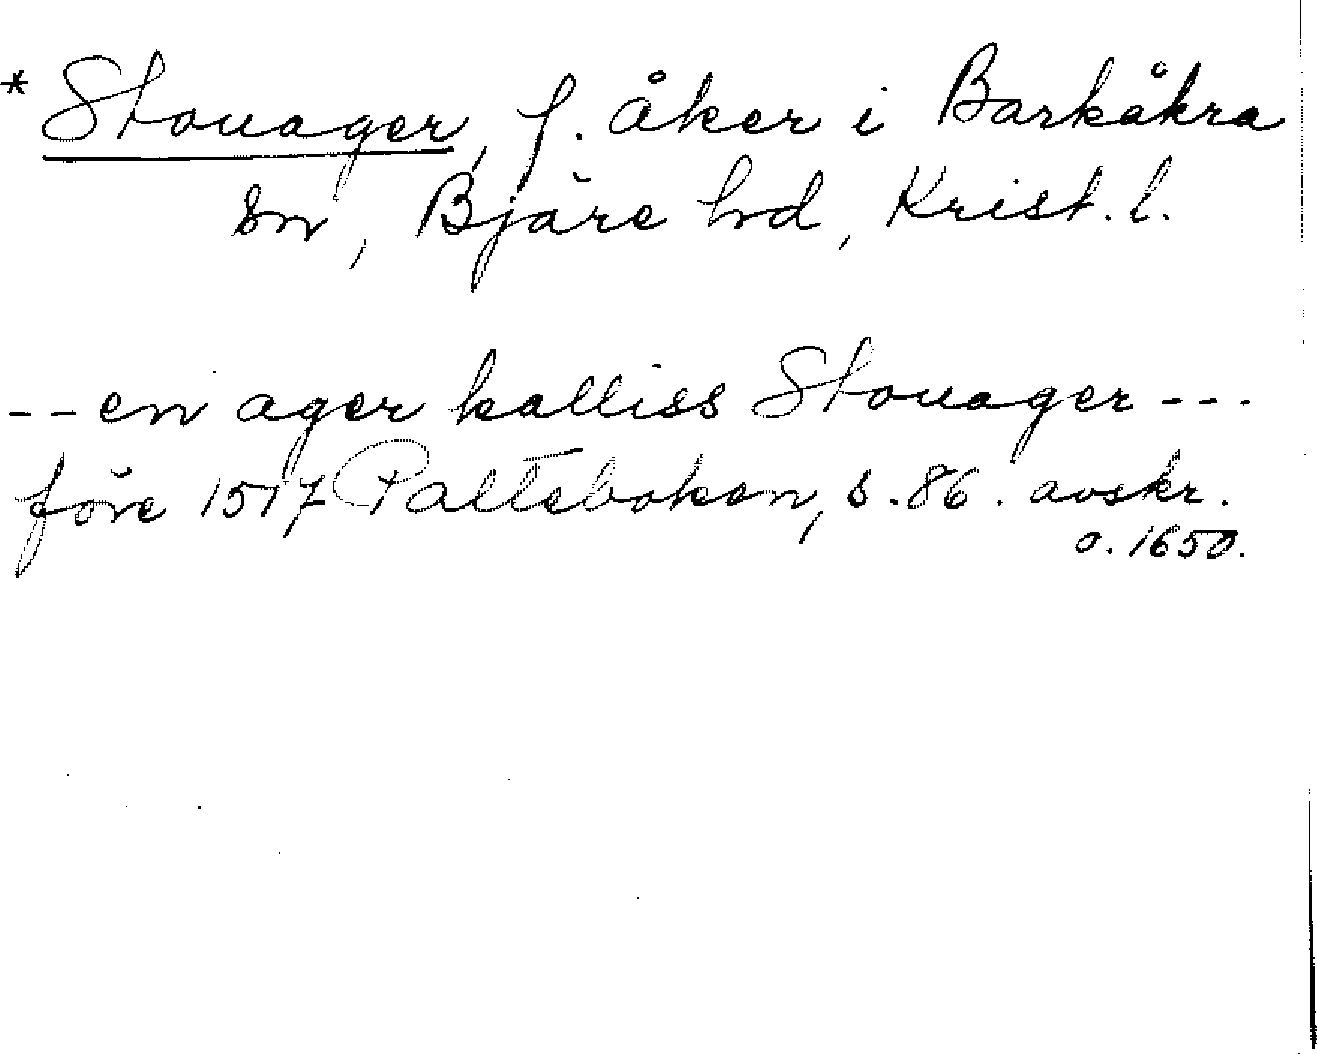 * Stouager, f. åker i Barkåkra
sn, Bjäre hd, Krist. l.
-- en ager kalliss Stouager ---
före 1517 Palteboken, s. 86. avskr.
o. 1650.